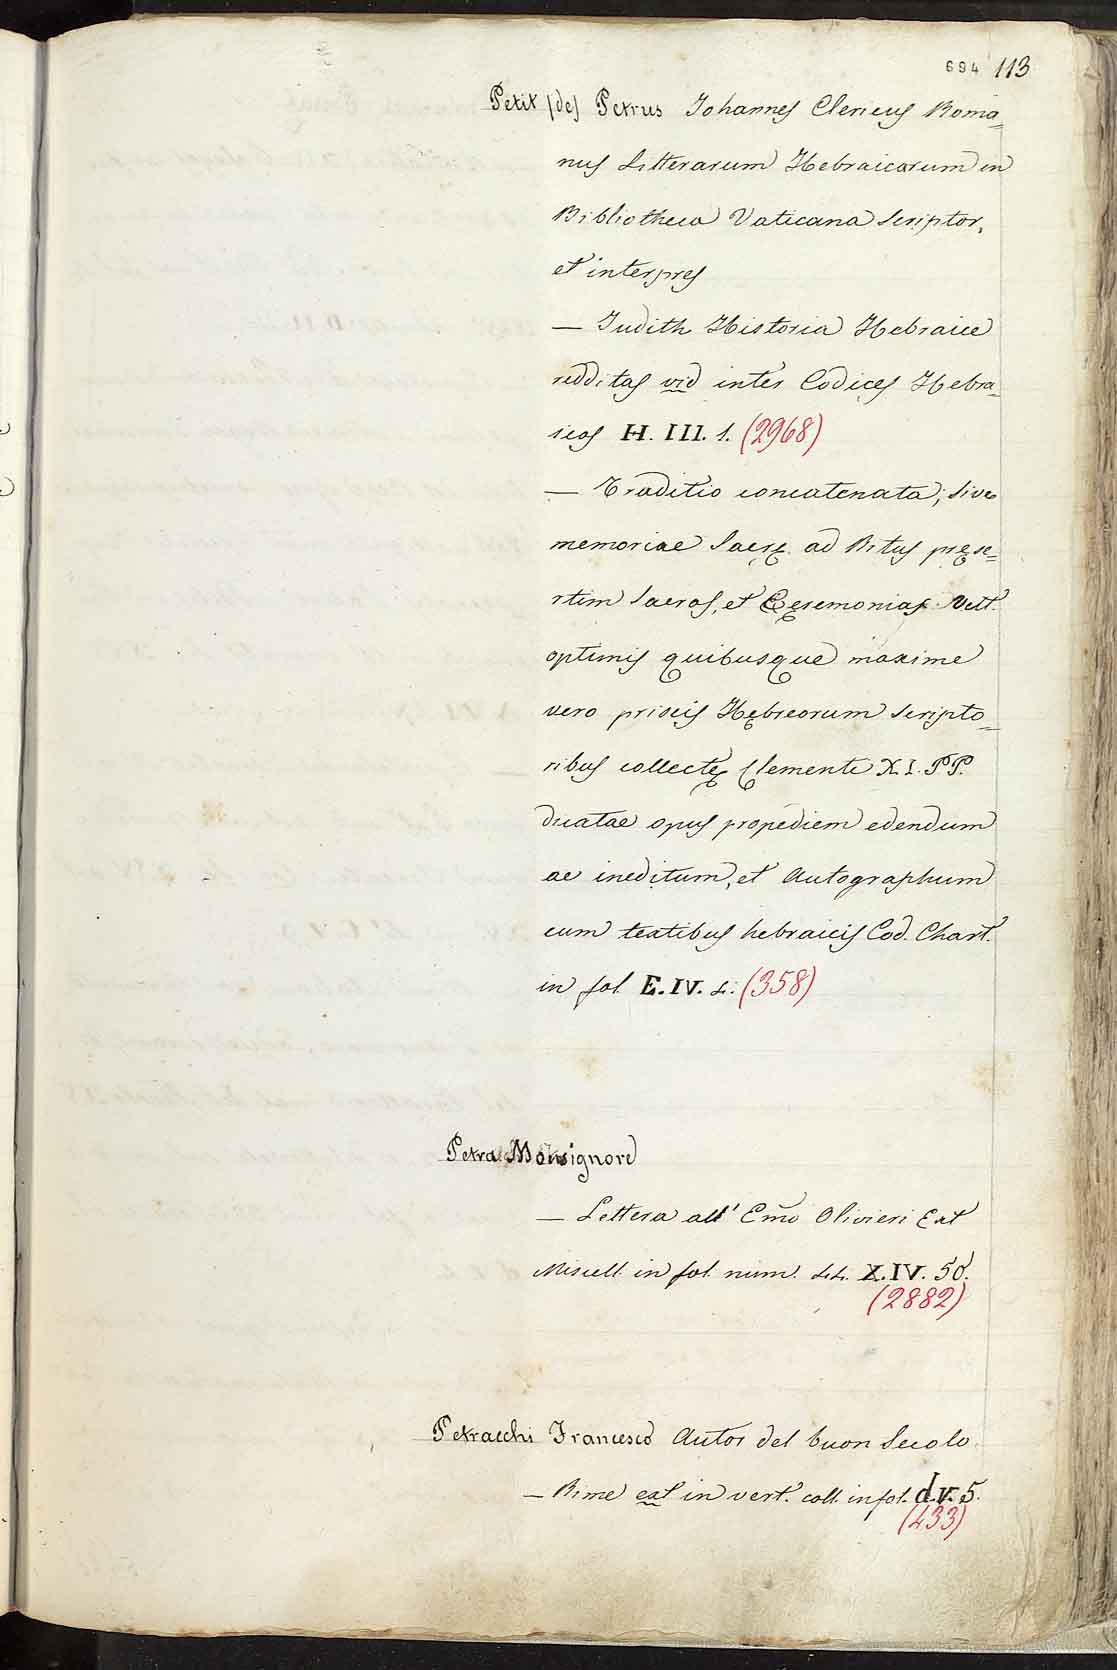 694 113
Petit (de) Petrus Johannes Clericus Roma=
nus Litterarum Hebraicarum in
Bibliotheca Vaticana Scriptor,
et interpres
— Judith Historia Hebraice
redditas vid inter Codices Hebra=
icos H. III. 1. (2968)
— Traditio concatenata, sive
memoriae Sacrę ad Ritus pręse=
rtim Sacros, et Cęremonias Vett.
optimis quibusque maxime
vero priscis Hębreorum Scripto=
ribus collectę Clementi XI. PP.
dicatae opus propediem edendum
ac ineditum, et Autographum
cum textibus hebraicis Cod. Chart.
in fol. E. IV. 4. (358)
Petra Monsignore
— Lettera all' Emo Olivieri Ext
Miscell. in fol. num. 44. X. IV. 50.
(2882)
Petracchi Francesco Autor del buon Secolo
— Rime ext in vert. coll. in fol. d. v. 5.
(433)